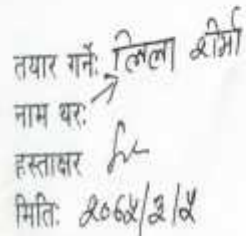 तयार गर्नेः लिला शर्मा
नाम थरः
हस्ताक्षर
मितिः २०६५/३/५